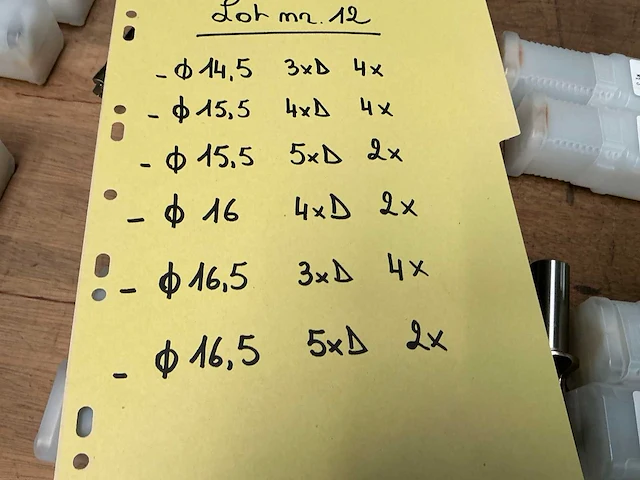 Lot nr. 12
- ϕ 14,5 3xD 4x
- ϕ 15,5 4xD 4x
- ϕ 15,5 5xD 2x
- ϕ 16 4xD 2x
- ϕ 16,5 3xD 4x
- ϕ 16,5 5xD 2x